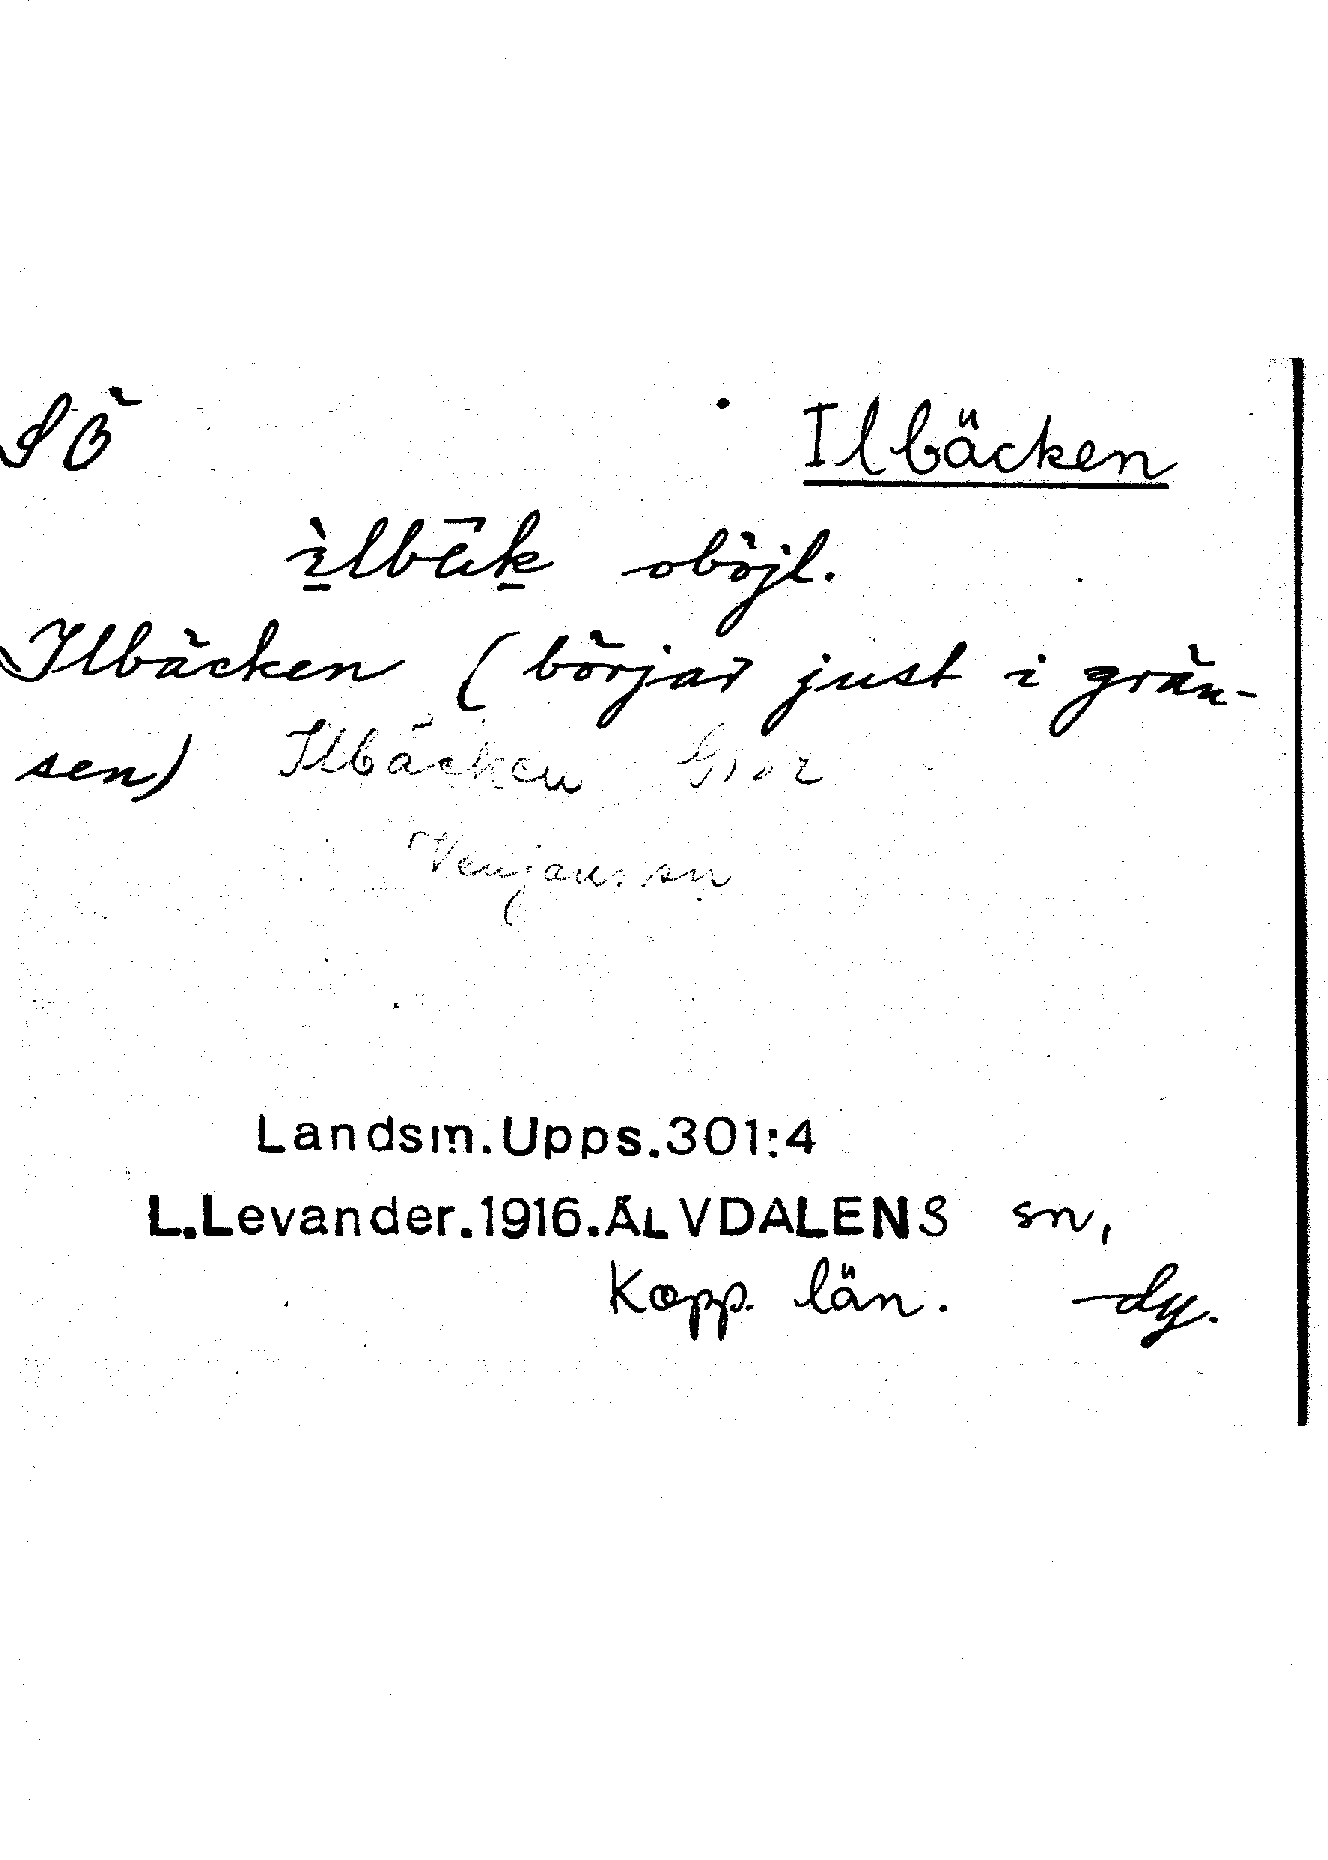 SÖ
Ilbäcken
ìlbäk oböjl.
Ilbäcken (börjar just i grän-
sen) Ilbäcken
Venjans sn
Landsm.Upps.301:4
L.Levander.1916.ÄLVDALENS sn,
Kopp. län. dy.